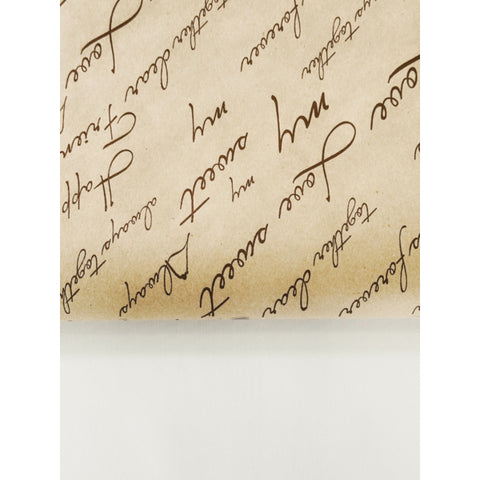 forever
together dear
Love
Love sweet
together
my
my Always
sweet
forever
my
always together
together dear
Happ
Love
Frien